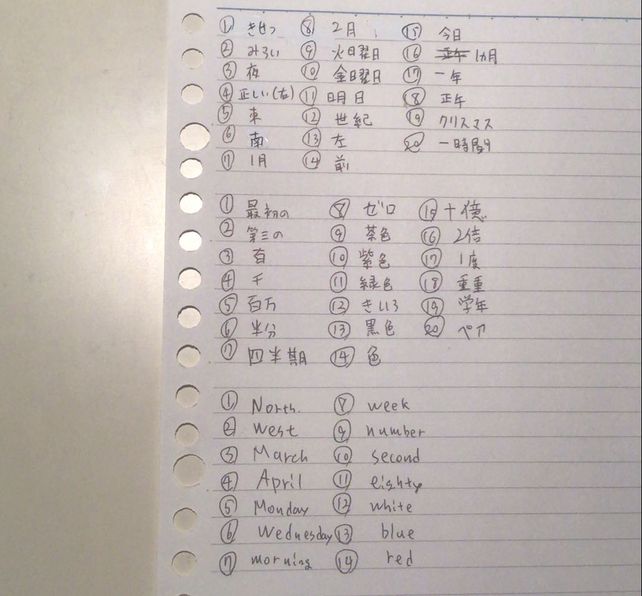 ① きせつ ⑧ 2月 ⑮ 今日
② みろい ⑨ 火曜日 ⑯ 1ヵ月
③ 夜 ⑩ 金曜日 ⑰ 一年
④ 正しい(右) ⑪ 明日 ⑱ 正午
⑤ 東 ⑫ 世紀 ⑲ クリスマス
⑥ 南 ⑬ 左 ⑳ 一時間
⑦ 1月 ⑭ 前
① 最初の ⑧ ゼロ ⑮ 十億
② 第三の ⑨ 茶色 ⑯ 2倍
③ 百 ⑩ 紫色 ⑰ 1度
④ 千 ⑪ 緑色 ⑱ 重量
⑤ 百万 ⑫ きいろ ⑲ 学年
⑥ 半分 ⑬ 黒色 ⑳ ペア
⑦ 四半期 ⑭ 色
① North. ⑧ week
② West ⑨ number
③ March ⑩ second
④ April ⑪ eighty
⑤ Monday ⑫ white
⑥ Wednesday ⑬ blue
⑦ morning ⑭ red